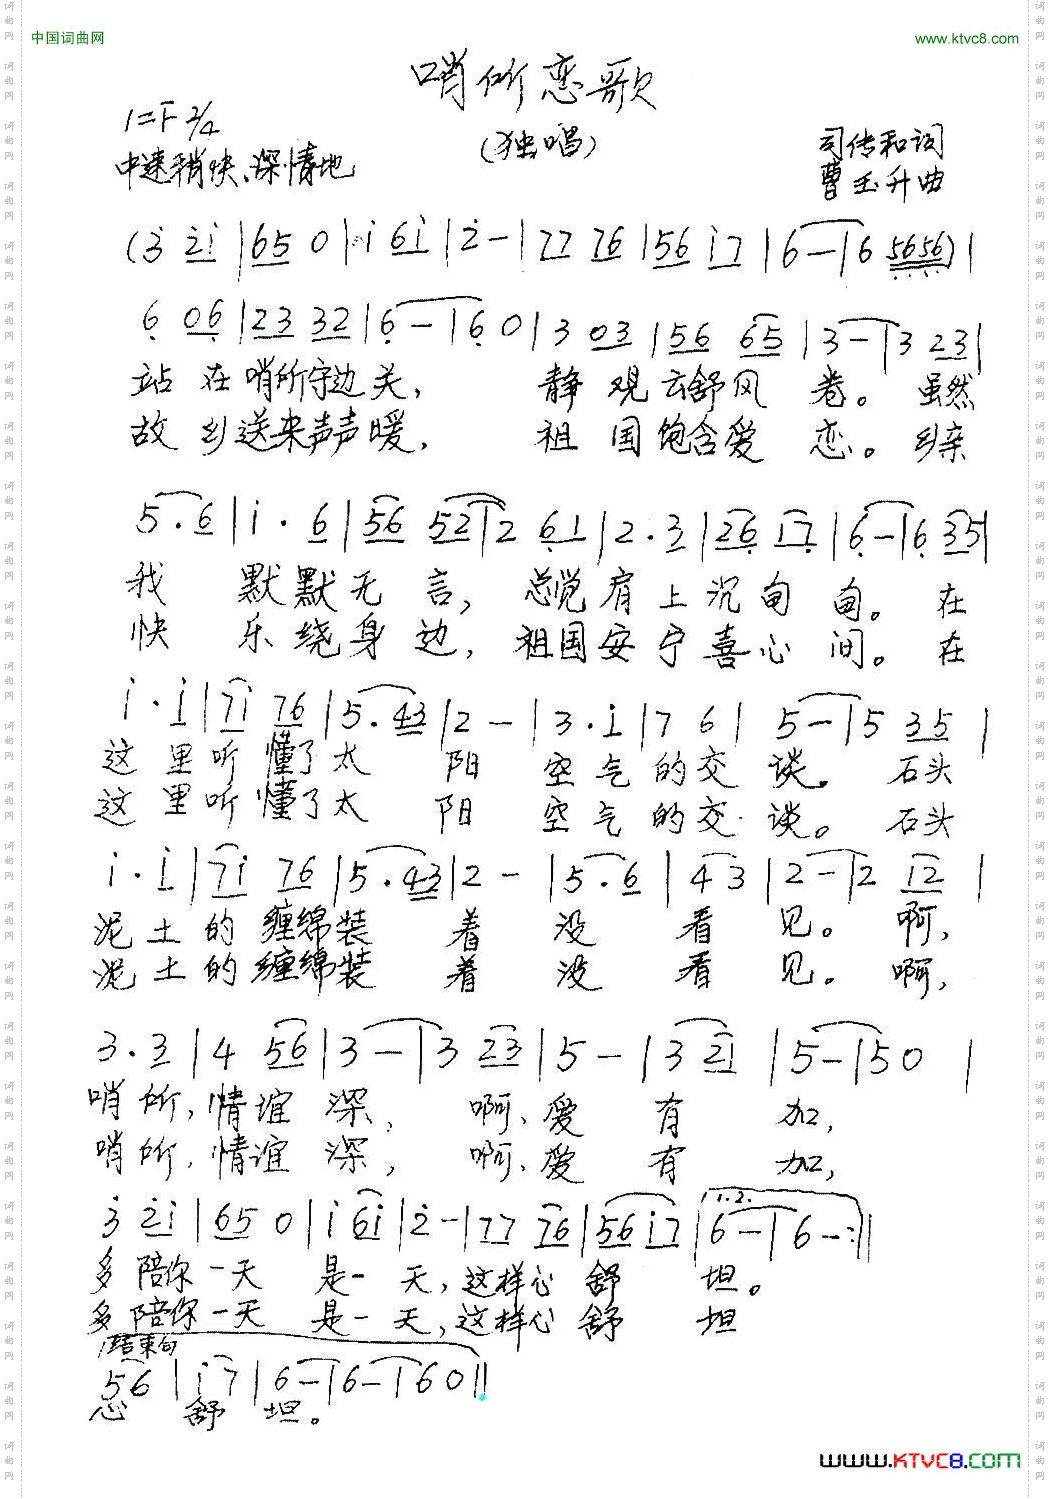 中国词曲网
www.ktvc8.com
哨所恋歌
1=F 2/4
(独唱)
中速稍快、深情地
司传和词
曹玉升曲
(3̇ 2̇1̇ | 65 0 | 1̇ 61̇ | 2̇ - | 77 76 | 56 1̇7 | 6 - | 6 5656) |
6̣ 06̣ | 23 32 | 6̣ - | 6̣ 0 | 3 03 | 56 65 | 3 - | 3 23 |
站在哨所守边关, 静观云舒风卷。虽然
故乡送来声声暖, 祖国饱含爱恋。乡亲
5·6 | 1̇·6 | 56 52 | 2 6̣1 | 2·3 | 26̣ 17̣ | 6̣ - | 6̣ 35 |
我默默无言, 总觉肩上沉甸甸。在
快乐绕身边, 祖国安宁喜心间。在
1̇·1̇ | 71̇ 76 | 5·43 | 2 - | 3·1̇ | 7 6 | 5 - | 5 35 |
这里听懂了太阳空气的交谈。石头
这里听懂了太阳空气的交谈。石头
1̇·1̇ | 71̇ 76 | 5·43 | 2 - | 5·6 | 43 | 2 - | 2 12 |
泥土的缠绵装着没看见。啊,
泥土的缠绵装着没看见。啊,
3·3 | 4 56 | 3 - | 3 23 | 5 - | 3 21 | 5 - | 5 0 |
哨所,情谊深, 啊、爱有加,
哨所,情谊深, 啊、爱有加,
3̇ 2̇1̇ | 65 0 | 1̇ 61̇ | 2̇ - | 77 76 | 56 1̇7 | 6 - | 6 - :||
1.2.
多陪你一天是一天,这样心舒坦。
多陪你一天是一天,这样心舒坦
结束句
56 | 1̇7 | 6 - | 6 - | 6 0 ||
心舒坦。
www.KTVC8.com